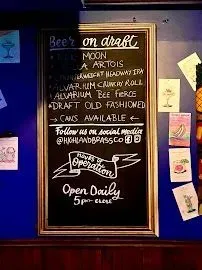 Beer on draft
MOON
ARTOIS
HEADWAY IPA
ALVARIUM CRUNCHY ROLL
ALVARIUM BEE FIERCE
•DRAFT OLD FASHIONED
→ CANS AVAILABLE ←
Follow us on social media
@HIGHLANDBRASSCO
Hours of
Operation
Open Daily
5pm-CLOSE